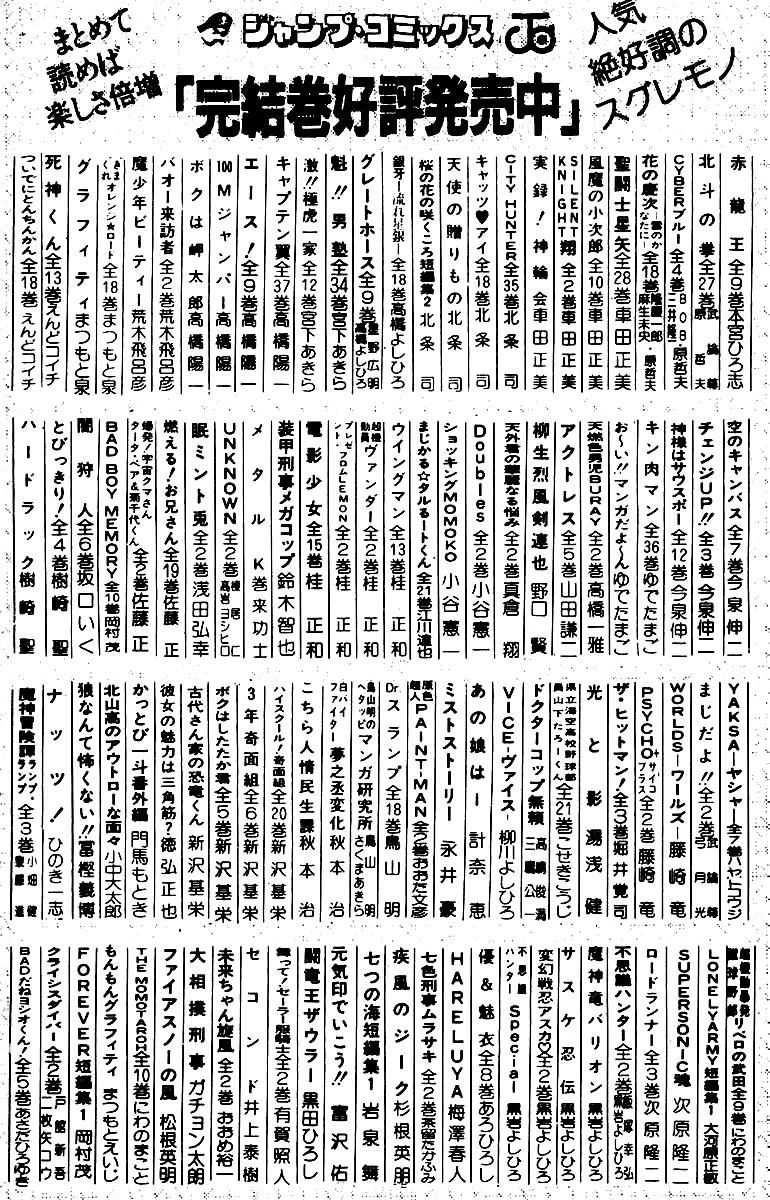 まとめて
読めば
楽しさ倍増
ジャンプ・コミックス
人気
絶好調の
スグレモノ
「完結巻好評発売中」
赤龍王 全9巻 本宮ひろ志
北斗の拳 全27巻 武論尊 原哲夫
CYBERブルー 全4巻 BOB・原哲夫 三井隆一
花の慶次―雲のかなたに― 全18巻 隆慶一郎・原哲夫 麻生未央
聖闘士星矢 全28巻 車田正美
風魔の小次郎 全10巻 車田正美
SILENT KNIGHT翔 全2巻 車田正美
実録!神輪会 車田正美
CITY HUNTER 全35巻 北条司
キャッツ♥アイ 全18巻 北条司
天使の贈りもの 北条司
桜の花の咲くころ 短編集2 北条司
銀牙―流れ星 銀― 全18巻 高橋よしひろ
グレートホース 全9巻 星野広明 高橋よしひろ
魁!!男塾 全34巻 宮下あきら
激!!極虎一家 全12巻 宮下あきら
キャプテン翼 全37巻 高橋陽一
エース! 全9巻 高橋陽一
100Mジャンパー 高橋陽一
ボクは岬太郎 高橋陽一
バオー来訪者 全2巻 荒木飛呂彦
魔少年ビーティー 荒木飛呂彦
きまぐれオレンジ★ロード 全18巻 まつもと泉
グラフィティ まつもと泉
死神くん 全13巻 えんどコイチ
ついでにとんちんかん 全18巻 えんどコイチ
空のキャンバス 全7巻 今泉伸二
チェンジUP!! 全3巻 今泉伸二
神様はサウスポー 全12巻 今泉伸二
キン肉マン 全36巻 ゆでたまご
お〜い!!マンガだよ〜ん ゆでたまご
天燃色男児BURAY 全2巻 高橋一雅
アクトレス 全5巻 山田謙二
柳生烈風剣連也 野口賢
天外君の華麗なる悩み 全2巻 真倉翔
Doubles 全2巻 小谷憲一
ショッキングMOMOKO 小谷憲一
まじかる☆タルるートくん 全21巻 江川達也
ウイングマン 全13巻 桂正和
超機動員ヴァンダー 全2巻 桂正和
プレゼント・フロムLEMON 全2巻 桂正和
電影少女 全15巻 桂正和
装甲刑事メガコップ 鈴木智也
メタルK 巻来功士
UNKNOWN 全2巻 棟居仁 高岩ヨシヒロ
眠兎 全2巻 浅田弘幸
燃える!お兄さん 全19巻 佐藤正
爆発!宇宙クマさんタータ・ベア&菊千代くん 全2巻 佐藤正
BAD BOY MEMORY 全10巻 岡村茂
闇狩人 全6巻 坂口いく
とびっきり! 全4巻 樹崎聖
ハードラック 樹崎聖
YAKSA―ヤシャ― 全7巻 ハヤトコウジ
まじだよ!! 全2巻 武論尊 弓月光
WORLDS―ワールズ― 藤崎竜
PSYCHO+ サイコプラス 全2巻 藤崎竜
ザ・ヒットマン! 全3巻 堀井覚司
光と影 湯浅健
県立海空高校野球部員山下たろーくん 全21巻 こせきこうじ
ドクターコップ無頼 高嶋俊満 三鷹公一
VICE―ヴァイス― 柳川よしひろ
あの娘はー 計奈恵
ミストストーリー 永井豪
原色超人PAINT-MAN 全2巻 おおた文彦
Dr.スランプ 全18巻 鳥山明
鳥山明のヘタッピマンガ研究所 鳥山明 さくまあきら
白バイファイター 夢之丞変化 秋本治
こちら人情民生課 秋本治
ハイスクール!奇面組 全20巻 新沢基栄
3年奇面組 全6巻 新沢基栄
ボクはしたたか君 全5巻 新沢基栄
古代さん家の恐竜くん 新沢基栄
彼女の魅力は三角筋? 徳弘正也
かっとび一斗番外編 門馬もとき
北山高のアウトローな面々 小中大太郎
狼なんて怖くない!! 冨樫義博
ナッツ! ひのき一志
魔神冒険譚ランプ・ランプ 全3巻 小畑健 泉藤進
超機動暴発蹴球野郎リベロの武田 全9巻 にわのまこと
LONELY ARMY 短編集1 大河原正敏
SUPERSONIC魂 次原隆二
ロードランナー 全3巻 次原隆二
不思議ハンター 全2巻 飯塚幸弘 黒岩よしひろ
魔神竜バリオン 黒岩よしひろ
サスケ忍伝 黒岩よしひろ
変幻戦忍アスカ 全2巻 黒岩よしひろ
不思議ハンターSpecial 黒岩よしひろ
優&魅衣 全8巻 あろひろし
HARELUYA 梅澤春人
七色刑事ムラサキ 全2巻 茶留たかふみ
疾風のジーク 杉根英明
七つの海 短編集1 岩泉舞
元気印でいこう!! 富沢佑
闘竜王ザウラー 黒田ひろし
舞って!セーラー服騎士 全2巻 有賀照人
セコンド 井上泰樹
未来ちゃん旋風 全2巻 おおめ裕一
大相撲刑事 ガチョン太朗
ファイアスノーの風 松根英明
THE MOMOTAROH 全10巻 にわのまこと
もんもんグラフィティ まつもとえいじ
FOREVER 短編集1 岡村茂
クライシスダイバー 全2巻 戸舘新吾 二枚矢コウ
BADだねヨシオくん! 全5巻 あさだひろゆき